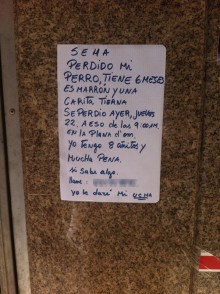 SE HA
PERDIDO Mi
PERRO, TIENE 6 MESES
ES MARRÓN Y UNA
CARITA TIERNA
SE PERDIO AYER, JUEVES
22. A ESO de las 9:00
EN LA PLANA d'
YO TENGO 8 AÑITOS Y
MUCHA PENA.
si sabe algo.
llame:
yo le daré Mi